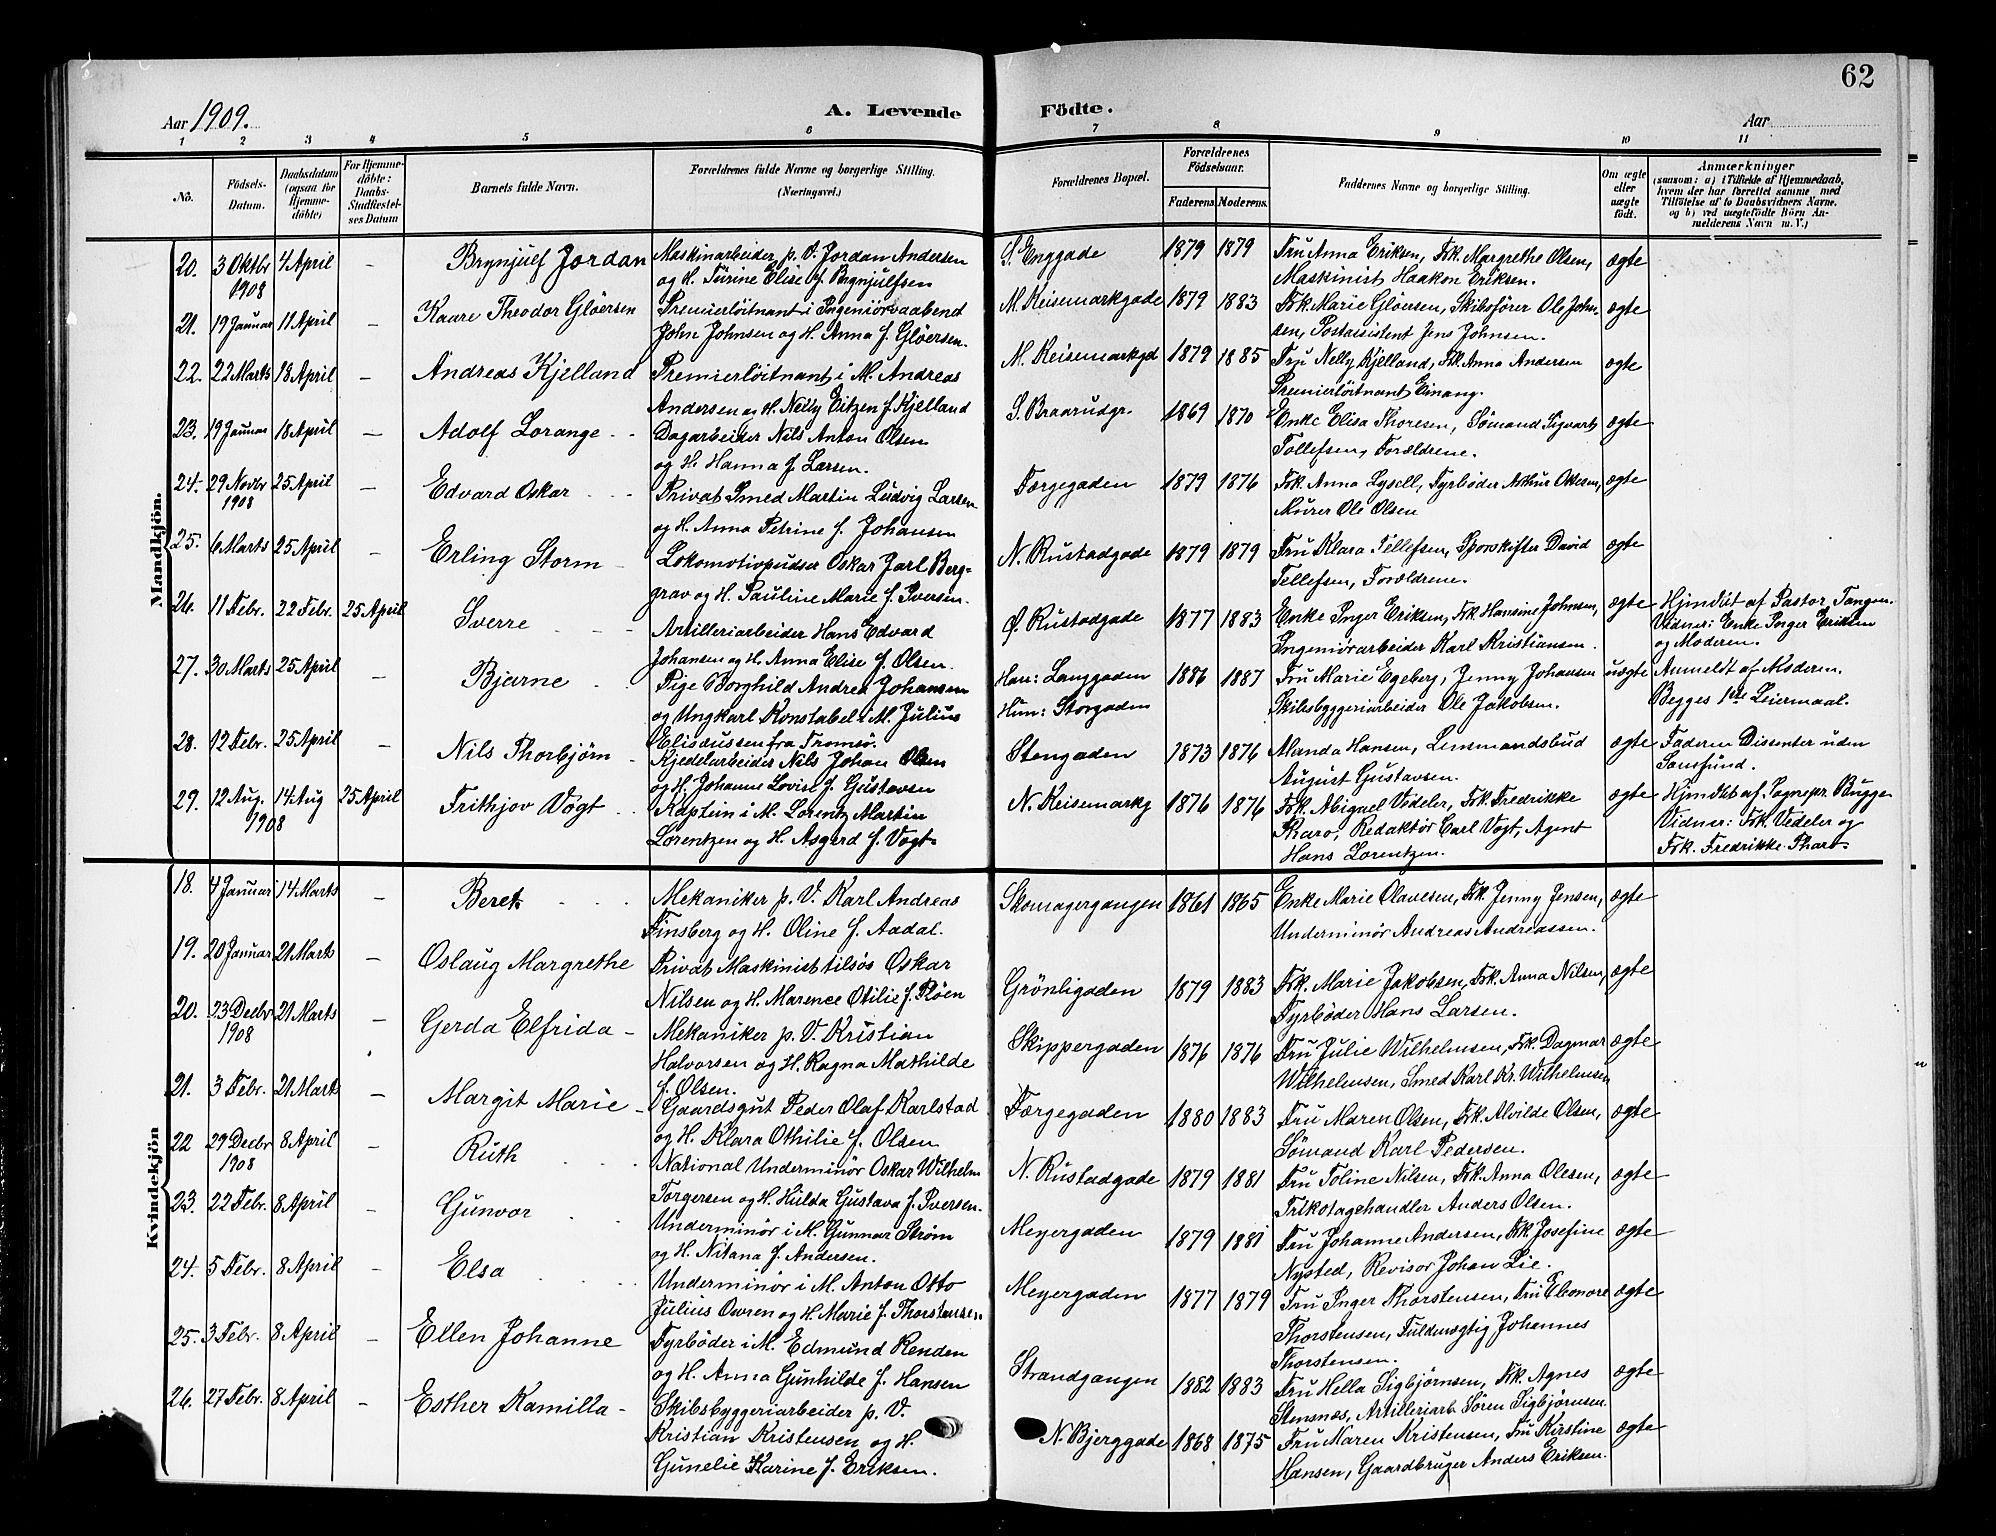 62
Aar 1909.
A. Levende Födte.
Aar
1 2 3 4 5 6 7 8 9 10 11
No.
Födsels-Datum.
Daabsdatum (ogsaa for Hjemme-döbte)
For Hjemme-döbte: Daabs-Stadfæstel-ses Datum
Barnets fulde Navn.
Forældrenes fulde Navne og borgerlige Stilling. (Næringsvei.)
Forældrenes Bopæl.
Forældrenes Födselsaar.
Faderens. Moderens.
Faddernes Navne og borgerlige Stilling.
Om ægte eller uægte födt.
Anmærkninger
(saasom: a) i Tilfælde af Hjemmedaab, hvem der har forrettet samme, med Tilföielse af to Daabsvidners Navne. og b) ved uægtefödte Börn An-melderens Navn m. V.)
Mandkjön.
20. 3 Oktbr 1908 4 April – Brynjulf Jordan Maskinarbeider p. V. Jordan Andersen
og H. Turine Elise f. Brynjulfsen
S. Enggade 1879 1879 Fru Anna Eriksen, Frk. Margrethe Olsen,
Maskinist Haakon Eriksen. ægte
21. 19 Januar 11 April – Kaare Theodor Gløersen Premierløitnant i Ingeniørvaabenet
John Johnsen og H. Anna f. Gløersen.
M. Keisemarkgade 1879 1883 Frk. Marie Gløersen, Skibsfører Ole John-
sen, Postassistent Jens Johnsen. ægte
22. 22 Marts 18 April – Andreas Kjelland Premierløitnant i M. Andreas
Andersen og H. Nelly Eitzen f. Kjelland
M. Keisemarkgd 1879 1885 Fru Nelly Kjelland, Frk. Anna Andersen
Premierløitnant Einang. ægte
23. 19 Januar 18 April – Adolf Lorange Dagarbeider Nils Anton Olsen
og H. Hanna f. Larsen.
S. Braarudgr. 1869 1870 Enke Elisa Thoresen, Sømand Sigvart
Tollefsen, Forældrene. ægte
24. 29 Novbr 1908 25 April – Edvard Oskar Privat Smed Martin Ludvig Larsen
og H. Anna Petrine f. Johansen
Færgegaden 1879 1876 Frk. Anna Lysell, Fyrbøder Arthur Olsen,
Murer Ole Olsen ægte
25. 6 Marts 25 April – Erling Storm Lokomotivpudser Oskar Jarl Berg-
grav og H. Pauline Marie f. Iversen.
N. Rustadgade 1879 1879 Fru Klara Tellefsen, Sporskifter David
Tellefsen, Forældrene. ægte
26. 11 Febr. 22 Febr. 25 April Sverre Artilleriarbeider Hans Edvard
Johansen og H. Anna Elise f. Olsen.
Ø. Rustadgade 1877 1883 Enke Inger Eriksen, Frk. Hansine Johnsen,
Ingeniørarbeider Karl Kristiansen. ægte
Hjmdøbt af Pastor Tangen.
Vidner: Enke Inger Eriksen
og Moderen.
27. 30 Marts 25 April – Bjarne Pige Borghild Andrea Johansen
og Ungkarl Konstabel i M. Julius
Elisæussen fra Tromsø.
Han: Langgaden
Hun: Storgaden
1886 1887 Fru Marie Egeberg, Jenny Johansen
Skibsbyggeriarbeider Ole Jakobsen. uægte
Anmeldt af Moderen.
Begges 1ste Leiermaal.
28. 12 Febr. 25 April – Nils Thorbjørn Kjedelarbeider Nils Johan Olsen
og H. Johanne Lovise f. Gustavsen
Stengaden 1873 1876 Manda Hansen, Lensmandsbud
August Gustavsen. ægte
Faderen Dissenter uden
Samfund.
29. 12 Aug. 1908 14 Aug 25 April Frithjov Vogt Kaptein i M. Lorentz Martin
Lorentzen og H. Asgerd f. Vogt
N. Keisemarkg 1876 1876 Frk. Abigael Vedeler, Frk. Fredrikke
Tharo, Redaktør Carl Vogt, Agent
Hans Lorentzen. ægte
Hjmdøbt af Sognepr. Bugge
Vidner: Frk. Vedeler og
Frk. Fredrikke Tharo
Kvindekjön
18. 4 Januar 14 Marts – Beret Mekaniker p. V. Karl Andreas
Finsberg og H. Oline f. Aadal.
Skomagergangen 1861 1865 Enke Marie Olavesen, Frk. Jenny Jensen,
Underminør Andreas Andreassen. ægte
19. 20 Januar 21 Marts – Oslaug Margrethe Privat Maskinist tilsøs Oskar
Nilsen og H. Marence Otilie f. Fløen
Grønligaden 1879 1883 Frk. Marie Jakobsen, Frk. Anna Nilsen,
Fyrbøder Hans Larsen. ægte
20. 23 Decbr 1908 21 Marts – Gerda Elfrida Mekaniker p. V. Kristian
Halvorsen og H. Ragna Mathilde
f. Olsen.
Skippergaden 1876 1876 Fru Julie Wilhelmsen, Frk. Dagmar
Wilhelmsen, Smed Karl Kr. Wilhelmsen ægte
21. 3 Febr. 21 Marts – Margit Marie Gaardsgut Peder Olaf Karlstad
og H. Klara Othilie f. Olsen
Færgegaden 1880 1883 Fru Maren Olsen, Frk. Alvilde Olsen,
Sømand Karl Pedersen. ægte
22 29 Decbr 1908 8 April – Ruth National Underminør Oskar Wilhelm
Torgersen og H. Hulda Gustava f. Iversen.
N. Rustadgade 1879 1881 Fru Toline Nilsen, Frk. Anna Olesen,
Trikotagehandler Anders Olsen. ægte
23. 22 Febr. 8 April – Gunvor Underminør i M. Gunnar Strøm
og H. Nitana f. Andersen.
Meyergaden 1879 1881 Fru Johanne Andersen, Frk Josefine
Nysted, Revisor Johan Lie. ægte
24. 5 Febr. 8 April – Elsa Underminør i M. Anton Otto
Julius Ovren og H. Marie f. Thorstensen.
Meyergaden 1877 1879 Fru Inger Thorstensen, Fru Eleonore
Thorstensen, Fuldmægtig Johannes
Thorstensen. ægte
25. 3 Febr. 8 April – Ellen Johanne Fyrbøder i M. Edmund Renden
og H. Anna Gunhilde f. Hansen
Strandgangen 1882 1883 Fru Hella Sigbjørnsen, Frk. Agnes
Stensnæs, Artilleriarb. Søren Sigbjørnsen. ægte
26. 27 Febr. 8 April – Esther Kamilla Skibsbyggeriarbeider p. V.
Kristian Kristensen og H.
Gunelie Karine f. Eriksen.
N. Bjerggade 1868 1875 Fru Maren Kristensen, Fru Kirstine
Hansen, Gaardbruger Anders Eriksen. ægte